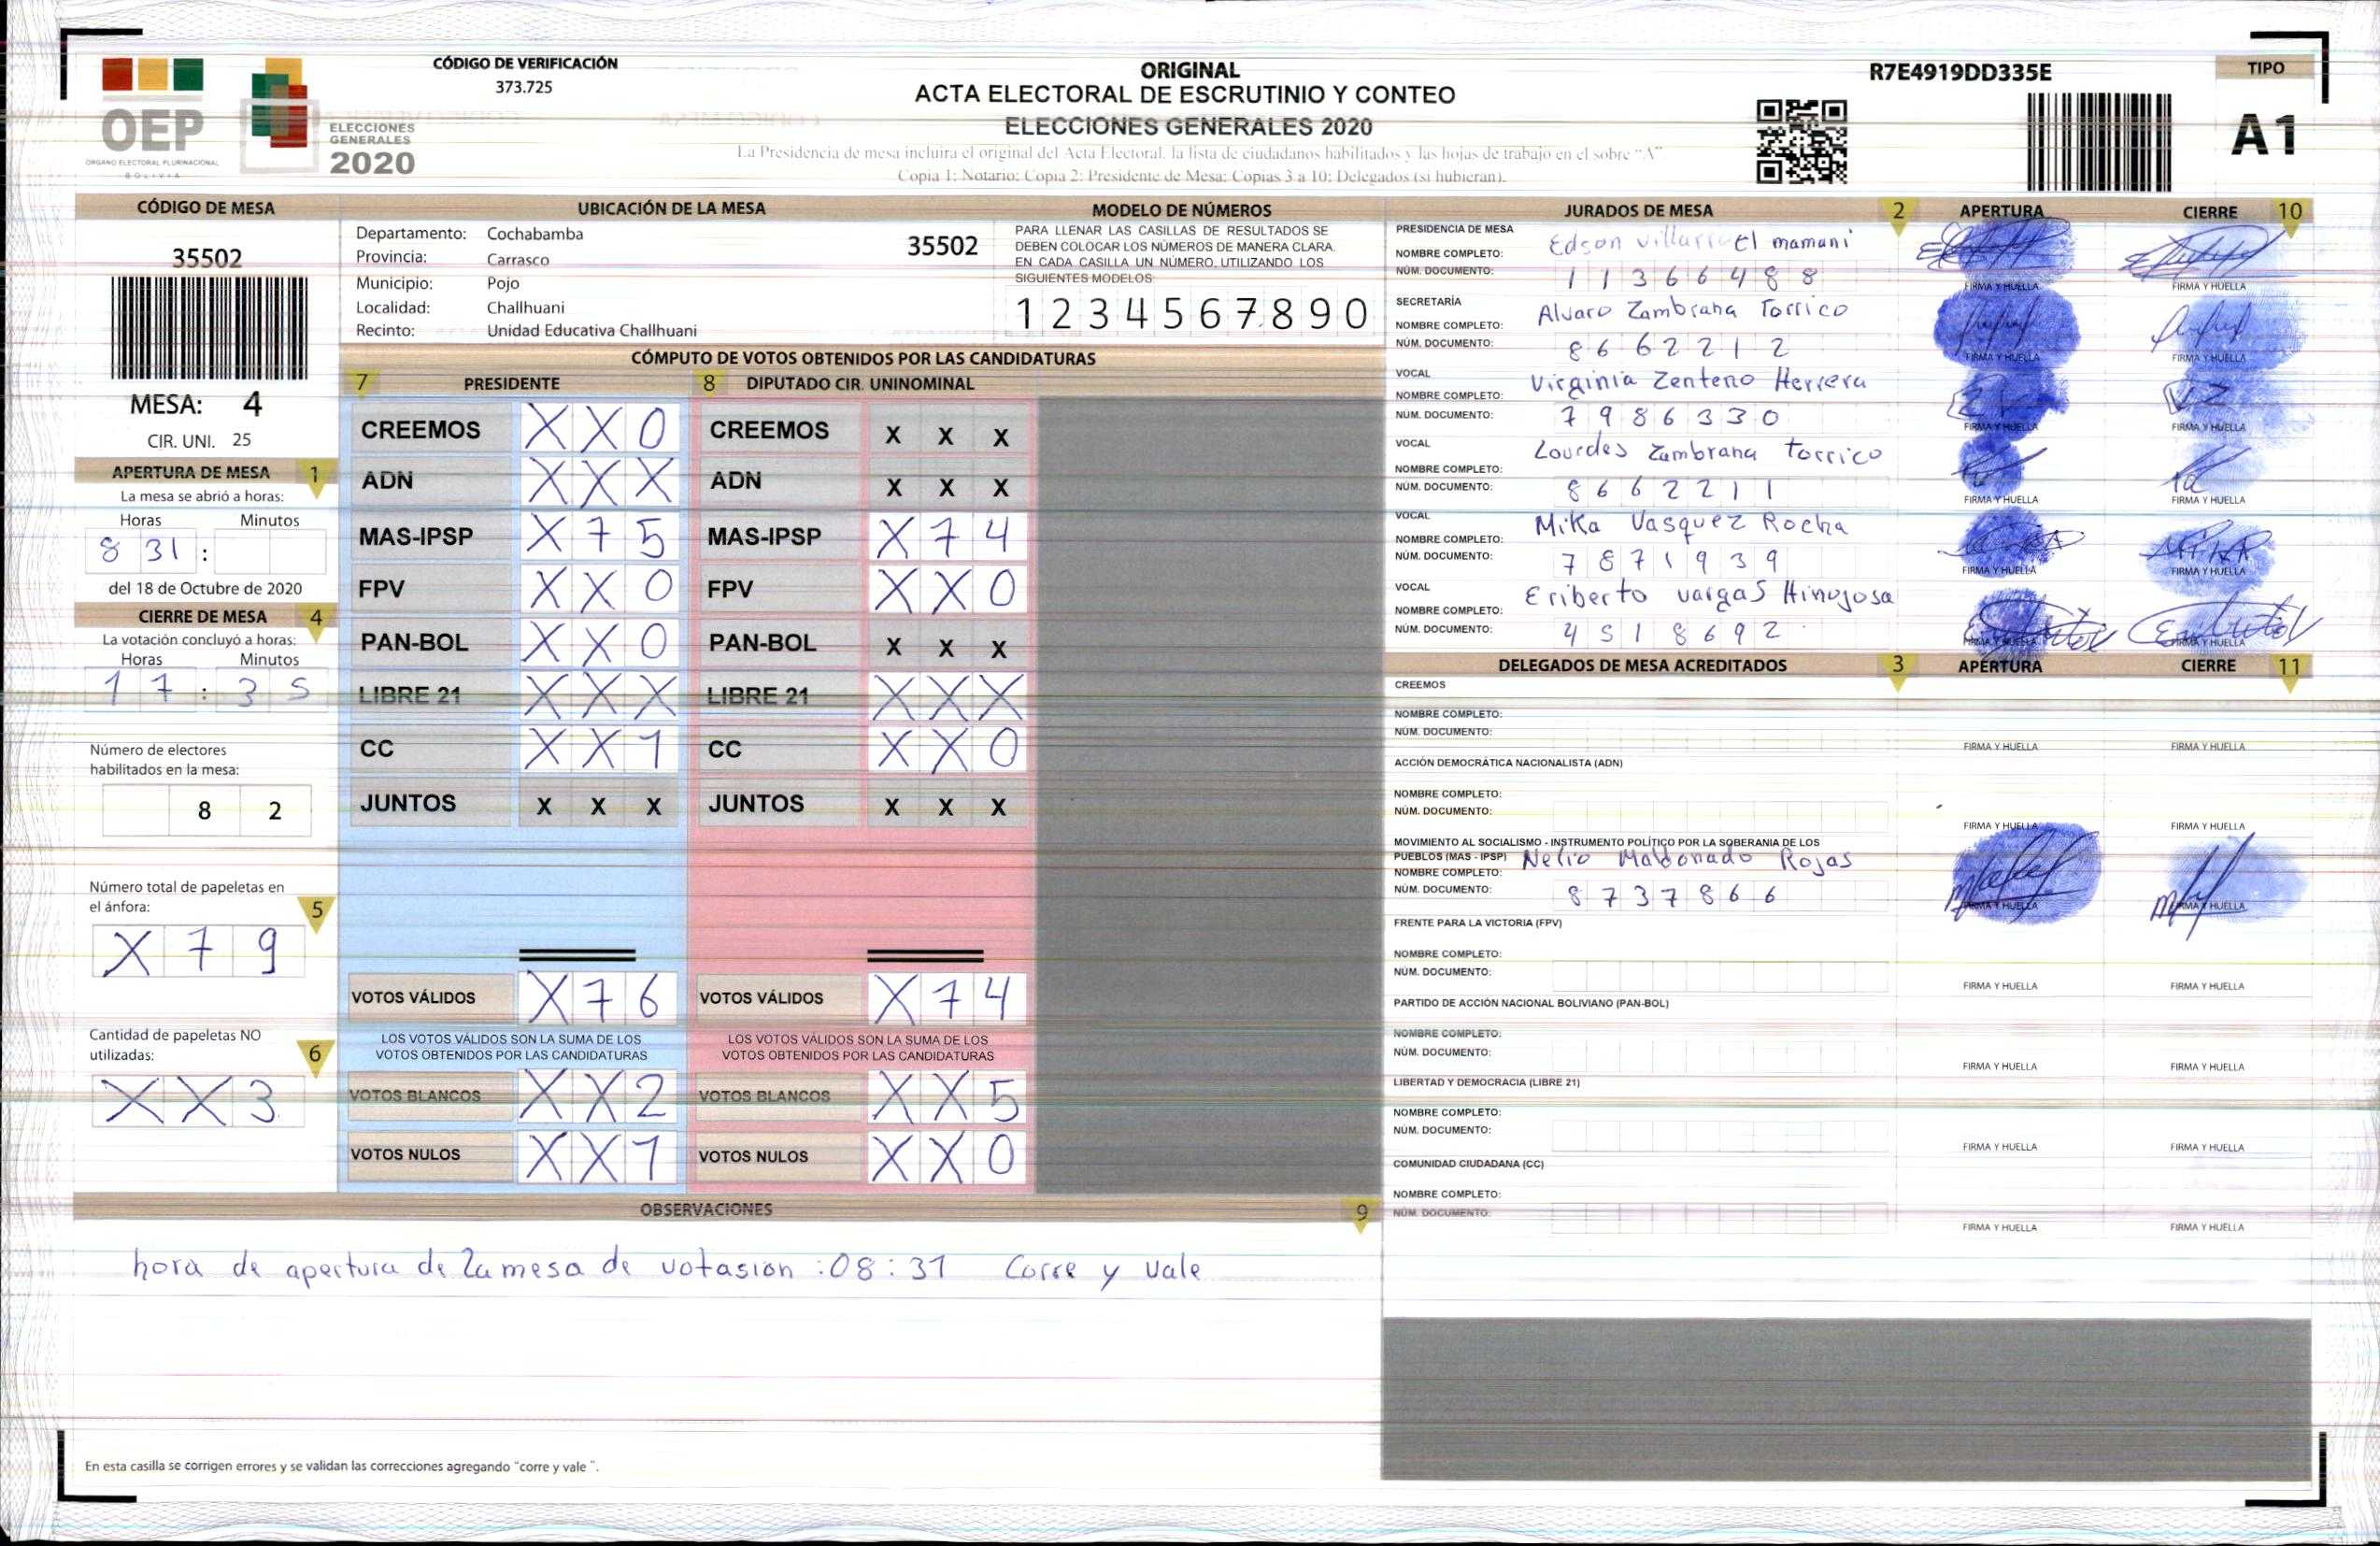 CÓDIGO DE VERIFICACIÓN
373.725
OEP
ORGANO ELECTORAL PLURINACIONAL
BOLIVIA
ELECCIONES
GENERALES
2020
ORIGINAL
ACTA ELECTORAL DE ESCRUTINIO Y CONTEO
ELECCIONES GENERALES 2020
La Presidencia de mesa incluira el original del Acta Electoral, la lista de ciudadanos habilitados y las hojas de trabajo en el sobre "A"
Copia 1: Notario; Copia 2: Presidente de Mesa; Copias 3 a 10: Delegados (si hubieran).
R7E4919DD335E
TIPO
A1
CÓDIGO DE MESA
35502
MESA: 4
CIR. UNI. 25
APERTURA DE MESA 1
La mesa se abrió a horas:
Horas Minutos
8 31 :
del 18 de Octubre de 2020
CIERRE DE MESA 4
La votación concluyó a horas:
Horas Minutos
1 7 : 3 5
Número de electores
habilitados en la mesa:
8 2
Número total de papeletas en
el ánfora: 5
X 7 9
Cantidad de papeletas NO
utilizadas: 6
X X 3
UBICACIÓN DE LA MESA
Departamento: Cochabamba
35502
Provincia: Carrasco
Municipio: Pojo
Localidad: Challhuani
Recinto: Unidad Educativa Challhuani
MODELO DE NÚMEROS
PARA LLENAR LAS CASILLAS DE RESULTADOS SE
DEBEN COLOCAR LOS NÚMEROS DE MANERA CLARA.
EN CADA CASILLA UN NÚMERO, UTILIZANDO LOS
SIGUIENTES MODELOS:
1 2 3 4 5 6 7 8 9 0
CÓMPUTO DE VOTOS OBTENIDOS POR LAS CANDIDATURAS
7 PRESIDENTE 8 DIPUTADO CIR. UNINOMINAL
CREEMOS X X 0 CREEMOS X X X
ADN X X X ADN X X X
MAS-IPSP X 7 5 MAS-IPSP X 7 4
FPV X X 0 FPV X X 0
PAN-BOL X X 0 PAN-BOL X X X
LIBRE 21 X X X LIBRE 21 X X X
CC X X 1 CC X X 0
JUNTOS X X X JUNTOS X X X
VOTOS VÁLIDOS X 7 6 VOTOS VÁLIDOS X 7 4
LOS VOTOS VÁLIDOS SON LA SUMA DE LOS LOS VOTOS VÁLIDOS SON LA SUMA DE LOS
VOTOS OBTENIDOS POR LAS CANDIDATURAS VOTOS OBTENIDOS POR LAS CANDIDATURAS
VOTOS BLANCOS X X 2 VOTOS BLANCOS X X 5
VOTOS NULOS X X 1 VOTOS NULOS X X 0
OBSERVACIONES 9
hora de apertura de La mesa de votasion :08:31 Corre y vale
En esta casilla se corrigen errores y se validan las correcciones agregando "corre y vale ".
JURADOS DE MESA 2 APERTURA CIERRE 10
PRESIDENCIA DE MESA
NOMBRE COMPLETO: Edson Villarruel mamani
NÚM. DOCUMENTO: 1 1 3 6 6 4 8 8
FIRMA Y HUELLA FIRMA Y HUELLA
SECRETARÍA
NOMBRE COMPLETO: Alvaro Zambrana Torrico
NÚM. DOCUMENTO: 8 6 6 2 2 1 2
FIRMA Y HUELLA FIRMA Y HUELLA
VOCAL
NOMBRE COMPLETO: Virginia Zenteno Herrera
NÚM. DOCUMENTO: 7 9 8 6 3 3 0
FIRMA Y HUELLA FIRMA Y HUELLA
VOCAL
NOMBRE COMPLETO: Lourdes Zambrana torrico
NÚM. DOCUMENTO: 8 6 6 2 2 1 1
FIRMA Y HUELLA FIRMA Y HUELLA
VOCAL
NOMBRE COMPLETO: Mika Vasquez Rocha
NÚM. DOCUMENTO: 7 8 7 1 9 3 9
FIRMA Y HUELLA FIRMA Y HUELLA
VOCAL
NOMBRE COMPLETO: Eriberto vargas Hinojosa
NÚM. DOCUMENTO: 4 5 1 8 6 9 2
FIRMA Y HUELLA FIRMA Y HUELLA
DELEGADOS DE MESA ACREDITADOS 3 APERTURA CIERRE 11
CREEMOS
NOMBRE COMPLETO:
NÚM. DOCUMENTO:
FIRMA Y HUELLA FIRMA Y HUELLA
ACCIÓN DEMOCRÁTICA NACIONALISTA (ADN)
NOMBRE COMPLETO:
NÚM. DOCUMENTO:
FIRMA Y HUELLA FIRMA Y HUELLA
MOVIMIENTO AL SOCIALISMO - INSTRUMENTO POLÍTICO POR LA SOBERANIA DE LOS
PUEBLOS (MAS - IPSP)
NOMBRE COMPLETO: Nelio Maldonado Rojas
NÚM. DOCUMENTO: 8 7 3 7 8 6 6
FIRMA Y HUELLA FIRMA Y HUELLA
FRENTE PARA LA VICTORIA (FPV)
NOMBRE COMPLETO:
NÚM. DOCUMENTO:
FIRMA Y HUELLA FIRMA Y HUELLA
PARTIDO DE ACCIÓN NACIONAL BOLIVIANO (PAN-BOL)
NOMBRE COMPLETO:
NÚM. DOCUMENTO:
FIRMA Y HUELLA FIRMA Y HUELLA
LIBERTAD Y DEMOCRACIA (LIBRE 21)
NOMBRE COMPLETO:
NÚM. DOCUMENTO:
FIRMA Y HUELLA FIRMA Y HUELLA
COMUNIDAD CIUDADANA (CC)
NOMBRE COMPLETO:
NÚM. DOCUMENTO:
FIRMA Y HUELLA FIRMA Y HUELLA